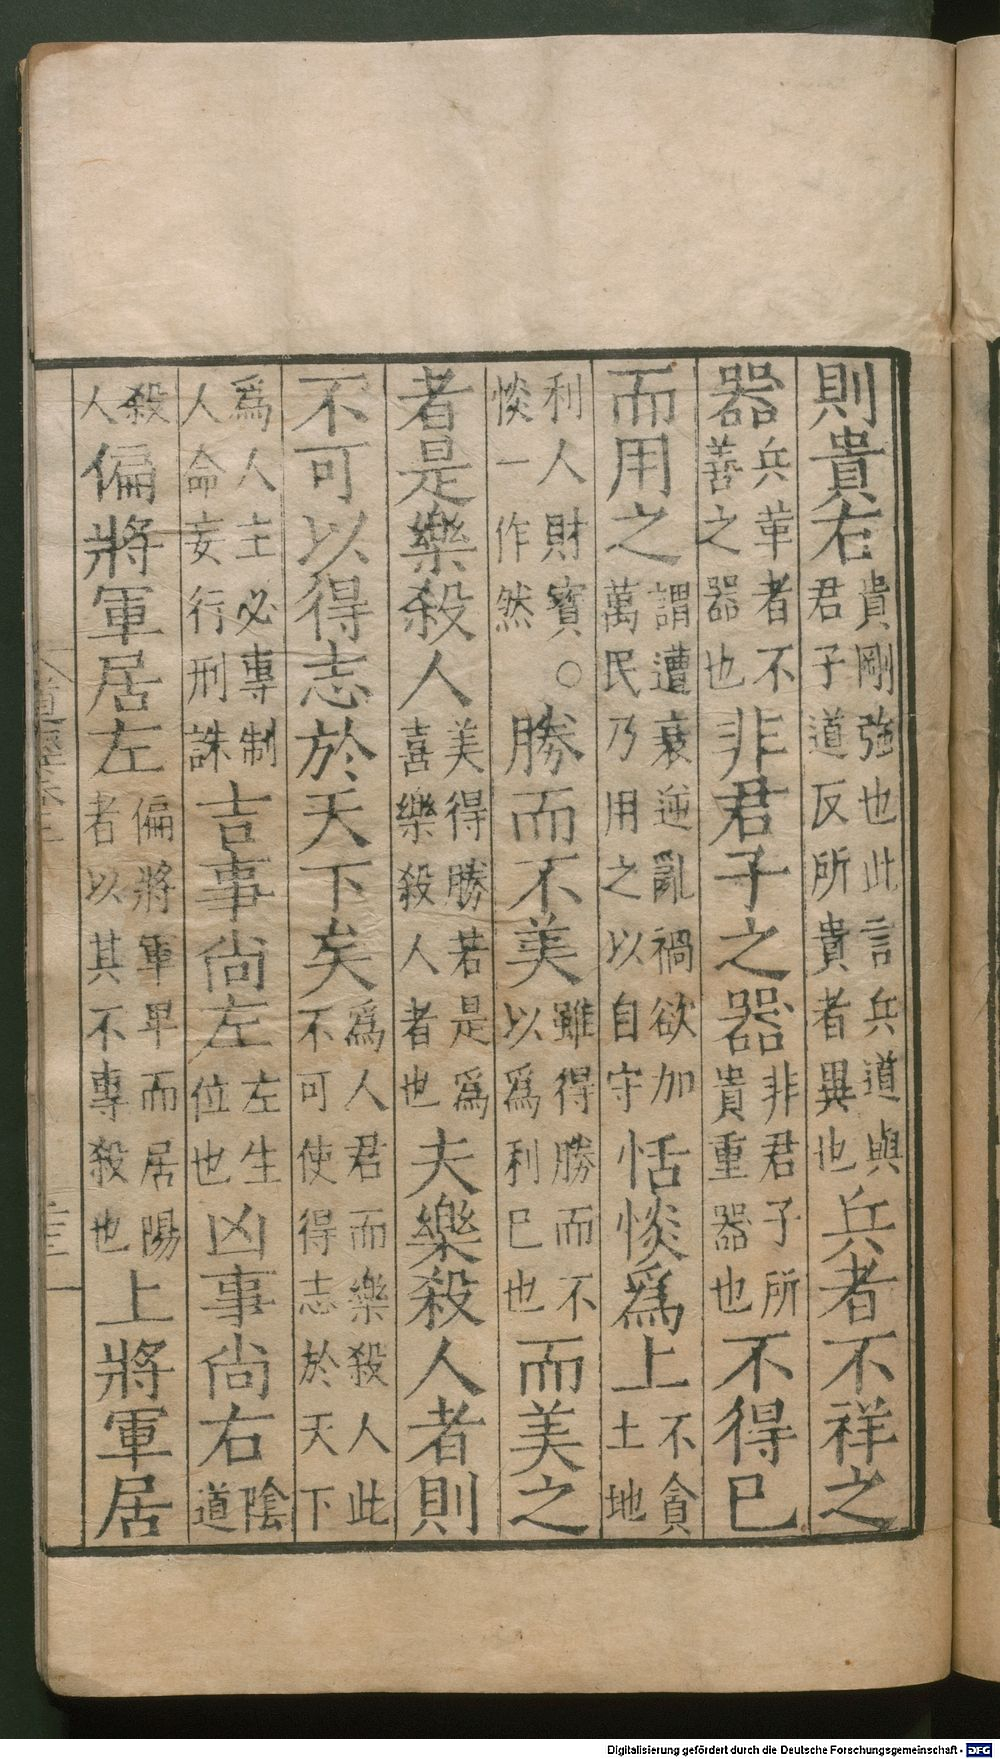 則貴右貴剛強也此言兵道與君子道反所貴者異也兵者不祥之
器兵革者不善之器也非君子之器非君子所貴重器也不得已
而用之謂遭衰逆亂禍欲加萬民乃用之以自守恬惔爲上不貪土地
利人財寳○惔一作然勝而不美雖得勝而不以爲利已也而美之
者是樂殺人美得勝若是爲喜樂殺人者也夫樂殺人者則
不可以得志於天下矣爲人君而樂殺人此不可使得志於天下
爲人主必專制人命妄行刑誅吉事尚左左生位也凶事尚右陰道
殺人偏將軍居左偏將軍卑而居陽者以其不專殺也上將軍居
Digitalisierung gefördert durch die Deutsche Forschungsgemeinschaft - DFG